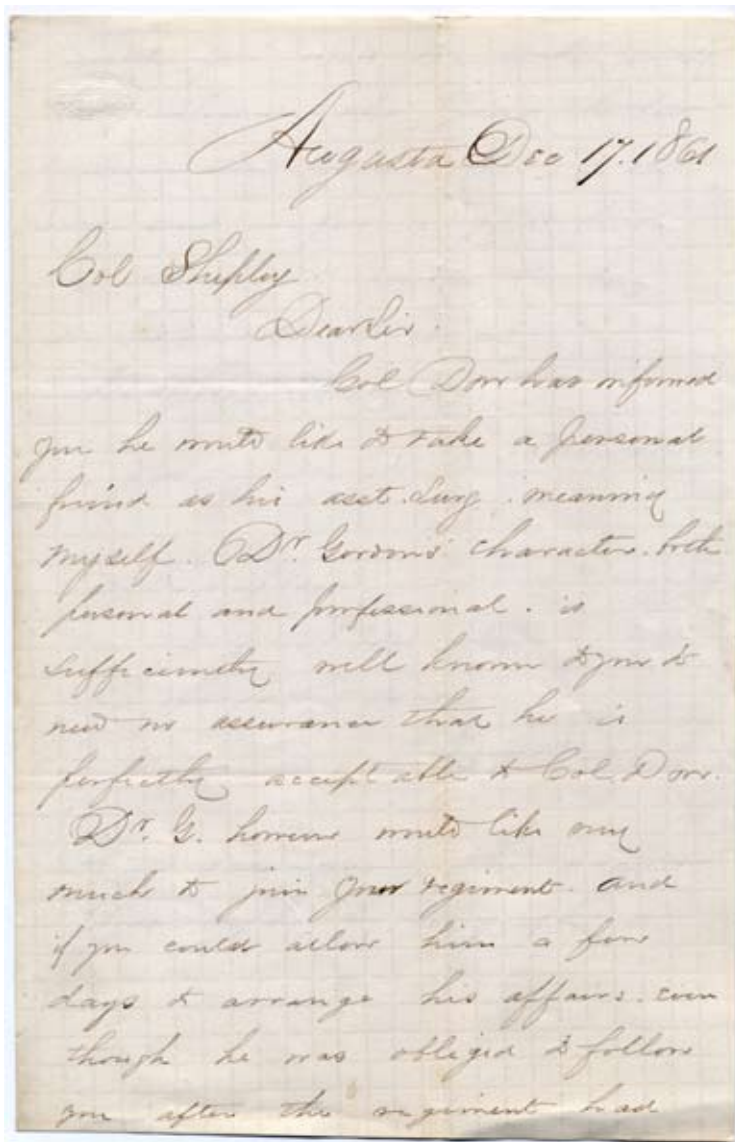 Augusta Dec 17. 1861
Col Shepley
Dear Sir.
Col Dow has informed
you he would like to take a personal
friend as his asst. Surg. meaning
myself. Dr. Gordon's character. both
personal and professional. is
sufficiently well known to you to
need no assurance that he is
perfectly acceptable to Col Dow.
Dr. G. however would like very
much to join your regiment. and
if you could allow him a few
days to arrange his affairs. even
though he was obliged to follow
you after the regiment had